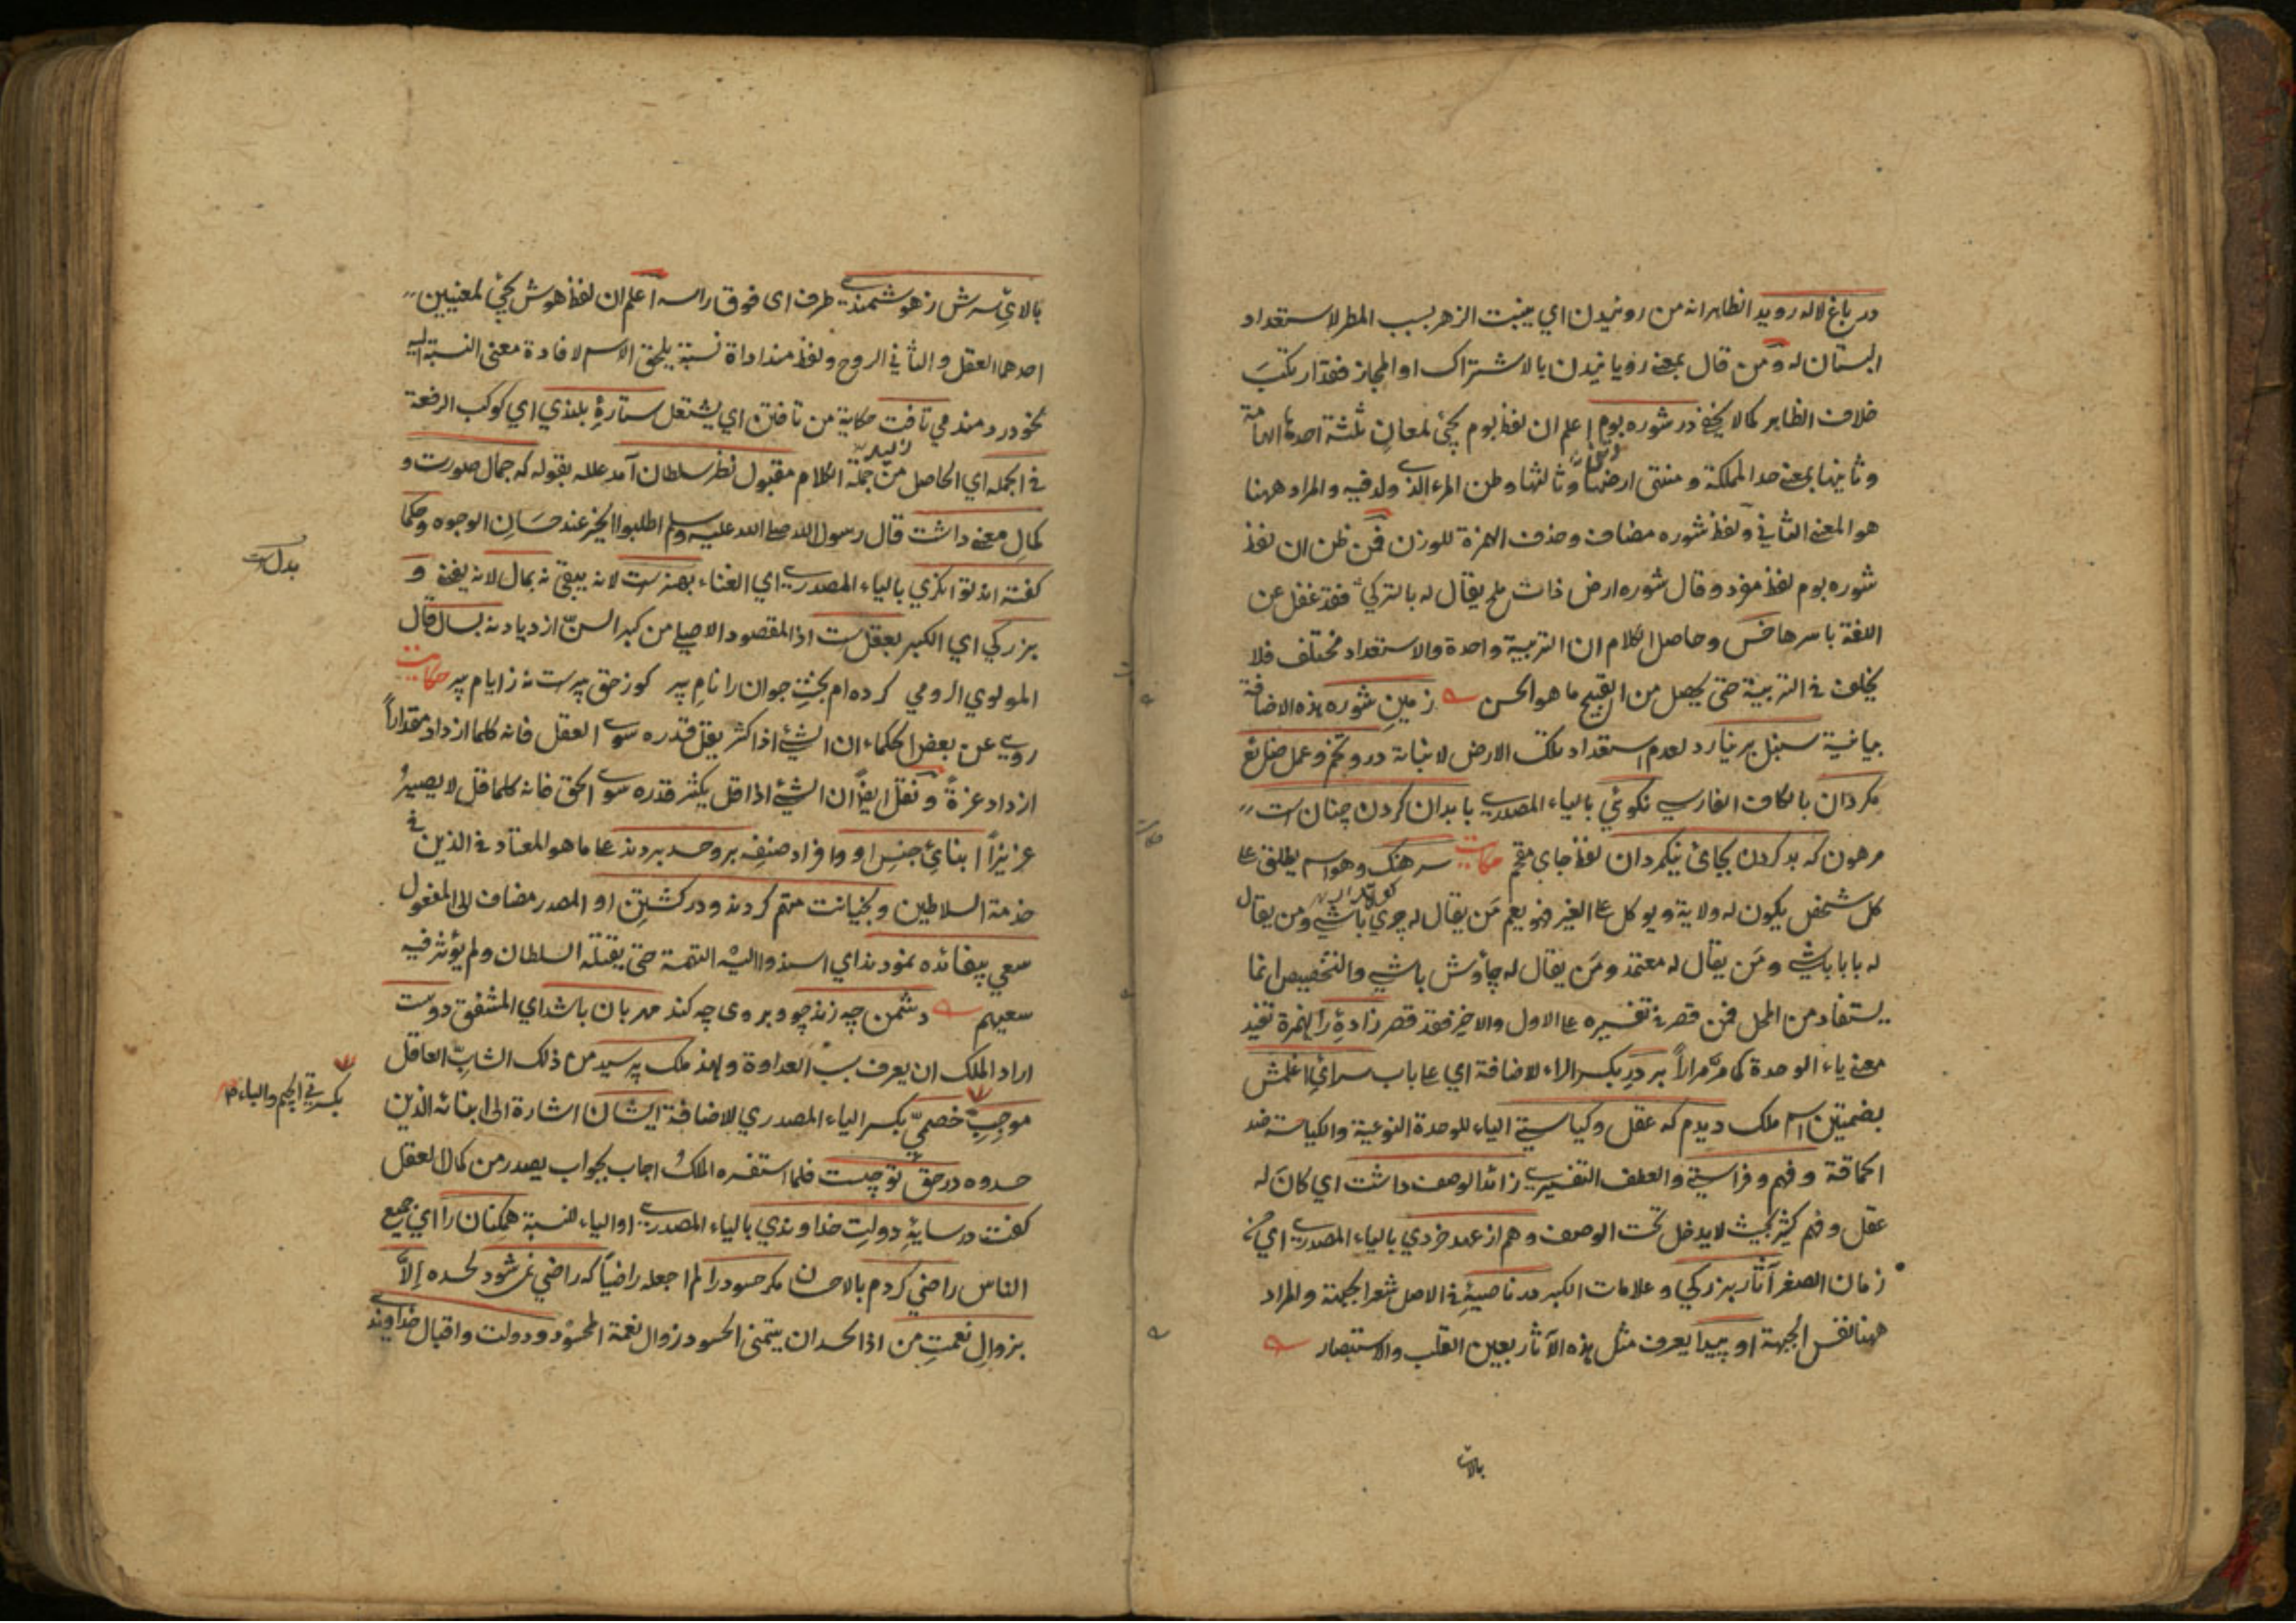 در باغ لاله رويد الظاهر انه من روئيدن اي ينبت الزهر بسبب المطر لاستعداد
البستان له ومن قال بمعنى رويانيدن بالاشتراك او المجاز فقد ارتكب
خلاف الظاهر كما لا يخفى در شوره بوم اعلم ان لفظ بوم يجئ لمعان ثلثة احدها
وثانيها بمعنى حد المملكة ومنتهى ارضها وثالثها وطن المرء الذي ولد فيه والمراد ههنا
هو المعنى الثاني ولفظ شوره مضاف وحذف الهمزة للوزن فمن ظن ان لفظ
شوره بوم لفظ مفرد وقال شوره ارض ذات ملح يقال له بالتركي فقد غفل عن
اللغة باسرها خس وحاصل الكلام ان التربية واحدة والاستعداد مختلف فلا
يختلف في التربية حتى يحصل من القبيح ما هو الحسن زمين شوره هذه الاضافة
بيانية سنبل بر نيارد لعدم استعداد تلك الارض لانباته درو تخم وعمل ضايع
مكردان بالكاف الفارسي نكوئي بالياء المصدرية با بدان كردن چنان است
مرهون كه بد كردن بجاى نيكمردان لفظ جاى مقحم حكايت سرهنك وهو اسم يطلق على
كل شخص يكون له ولاية ويوكل على الغير فهو يعم من يقال له چري باشي ومن يقال
له بابا باشي ومن يقال له معتمد ومن يقال له چاوش باشي والتخصيص انما
يستفاد من المحل فمن قصر في تفسيره على الاول والاخير فقد قصر زاده را الهمزة تفيد
معنى ياء الوحدة كما مر مرارا بر در بكسر الراء لاضافة اي على باب سراي اغلمش
بضمتين اسم ملك ديدم كه عقل وكياستي الياء للوحدة النوعية والكياسة ضد
الحماقة وفهم وفراستي والعطف التفسيري زائد الوصف داشت اي كان له
عقل وفهم كثير بحيث لا يدخل تحت الوصف وهم از عهد خردي بالياء المصدرية اي من
زمان الصغر آثار بزركي وعلامات الكبر در ناصيه في الاصل شعر الجبهة والمراد
ههنا نفس الجبهة او پيدا يعرف مثل هذه الآثار بعين القلب والاستبصار
بالاى
بالاي سرش ز هوشمندي ظرف اى فوق راسه اعلم ان لفظ هوش يجئ لمعنيين
احدهما العقل والثاني الروح ولفظ مند اداة نسبة يلحق الاسم لافادة معنى النسبة اليه
نحو دردمند مي تافت حكاية من تافتن اي يشتعل ستاره بلندي اي كوكب الرفعة
في الجمله اي الحاصل من جملة الكلام مقبول نظر سلطان آمد علله بقوله كه جمال صورت و
كمال معنى داشت قال رسول الله صلى الله عليه وسلم اطلبوا الخير عند حسان الوجوه وحكما
كفته اند توانكري بالياء المصدرية اي الغناء بهنرست لانه يبقى نه بمال لانه يفنى و
بزركي اي الكبر بعقلست اذ المقصود الاصلي من كبر السن ازدياده نه بسال قال
المولوي الرومي كرده ام بخت جوان را نام پير كوز حق پيرست نه ز ايام پير حكايت
روي عن بعض الحكماء ان الشئ اذا كثر يقل قدره سوى العقل فانه كلما ازداد مقدارا
ازداد عزة ونقل ايضا ان الشئ اذا قل يكثر قدره سوى الحق فانه كلما قل لا يصير
عزيزا ابناي جنس او وافراد صنفه برو حسد بردند على ما هو المعتاد في الذين في
خدمة السلاطين وبخيانت متهم كردند ودر كشتن او المصدر مضاف الى المفعول
سعي بيفائده نمودند اي اسندوا اليه التهمة حتى يقتله السلطان ولم يؤثر فيه
سعيهم دشمن چه زند چو بروى چه كند مهربان باشد اي المشفق دوست
اراد الملك ان يعرف سبب العداوة ولهذا ملك پرسيد من ذلك الشاب العاقل
موجب خصمي بكسر الياء المصدري للاضافة ايشان اشارة الى ابنائه الذين
حسدوه در حق تو چيست فلما استفسره الملك اجاب بجواب يصدر من كمال العقل
كفت در سايه دولت خداوندي بالياء المصدرية او الياء للنسبة همكنان را اي جميع
الناس راضي كردم بالاحسان مكر حسود را لم اجعله راضيا كه راضي نمي شود لحسده الا
بزوال نعمت من اذ الحسد ان يتمنى الحسود زوال نعمة المحسود ودولت واقبال خداوند
بدل است
بكسر في الجيم والباء